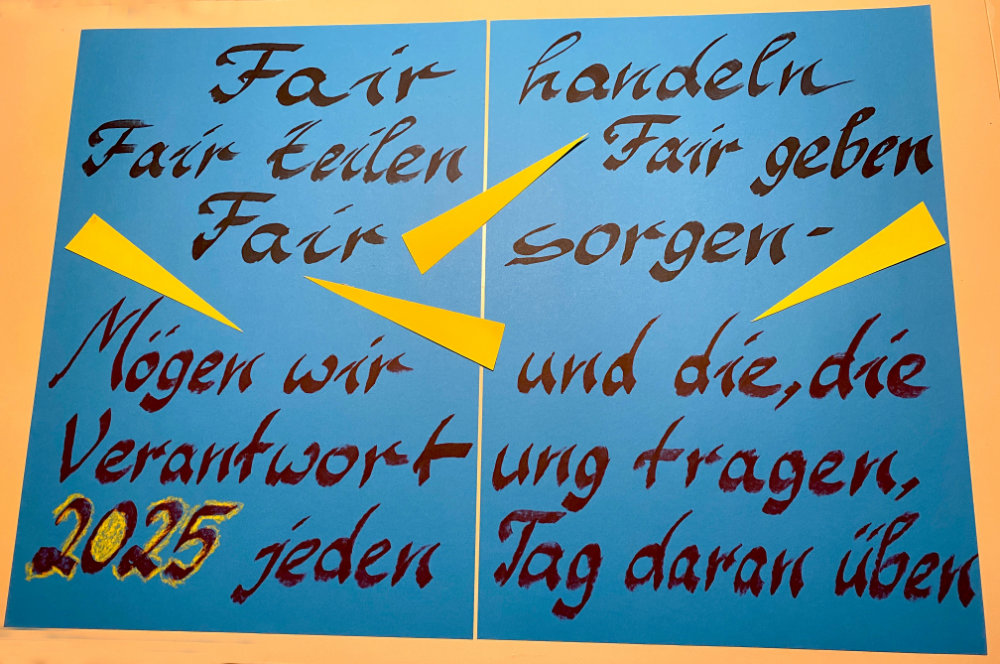 Fair handeln
Fair teilen Fair geben
Fair sorgen-
Mögen wir und die, die
Verantwortung tragen,
2025 jeden Tag daran üben